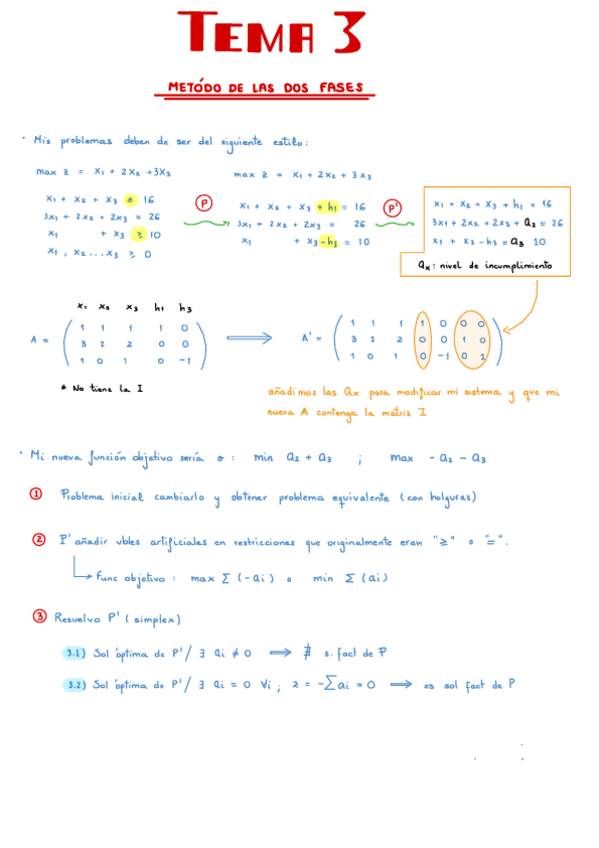 TEMA 3
METÓDO DE LAS DOS FASES
· Mis problemas deben de ser del siguiente estilo:
max z = x₁ + 2x₂ + 3x₃
max z = x₁ + 2x₂ + 3x₃
x₁ + x₂ + x₃ ≤ 16
3x₁ + 2x₂ + 2x₃ = 26
x₁ + x₃ ≥ 10
x₁, x₂ ... x₃ ≥ 0
P
x₁ + x₂ + x₃ + h₁ = 16
3x₁ + 2x₂ + 2x₃ = 26
x₁ + x₃ - h₃ = 10
P'
x₁ + x₂ + x₃ + h₁ = 16
3x₁ + 2x₂ + 2x₃ + a₂ = 26
x₁ + x₃ - h₃ = a₃ 10
aₓ: nivel de incumplimiento
x₁ x₂ x₃ h₁ h₃
1 1 1 1 0
A = 3 2 2 0 0
1 0 1 0 -1
* No tiene la I
1 1 1 1 0 0 0
A' = 3 2 2 0 0 1 0
1 0 1 0 -1 0 1
añadimos las aₓ para modificar mi sistema y que mi
nueva A contenga la matriz I
· Mi nueva función objetivo sería o: min a₂ + a₃ ; max - a₂ - a₃
① Problema inicial cambiarlo y obtener problema equivalente (con holguras)
② P' añadir vbles artificiales en restricciones que originalmente eran "≥" o "=".
Func objetivo: max Σ (-ai) o min Σ (ai)
③ Resuelvo P' (simplex)
3.1) Sol óptima de P' / ∃ ai ≠ 0 ⟹ ∄ s. fact de P
3.2) Sol óptima de P' / ∃ ai = 0 ∀i ; z = -Σai = 0 ⟹ es sol fact de P